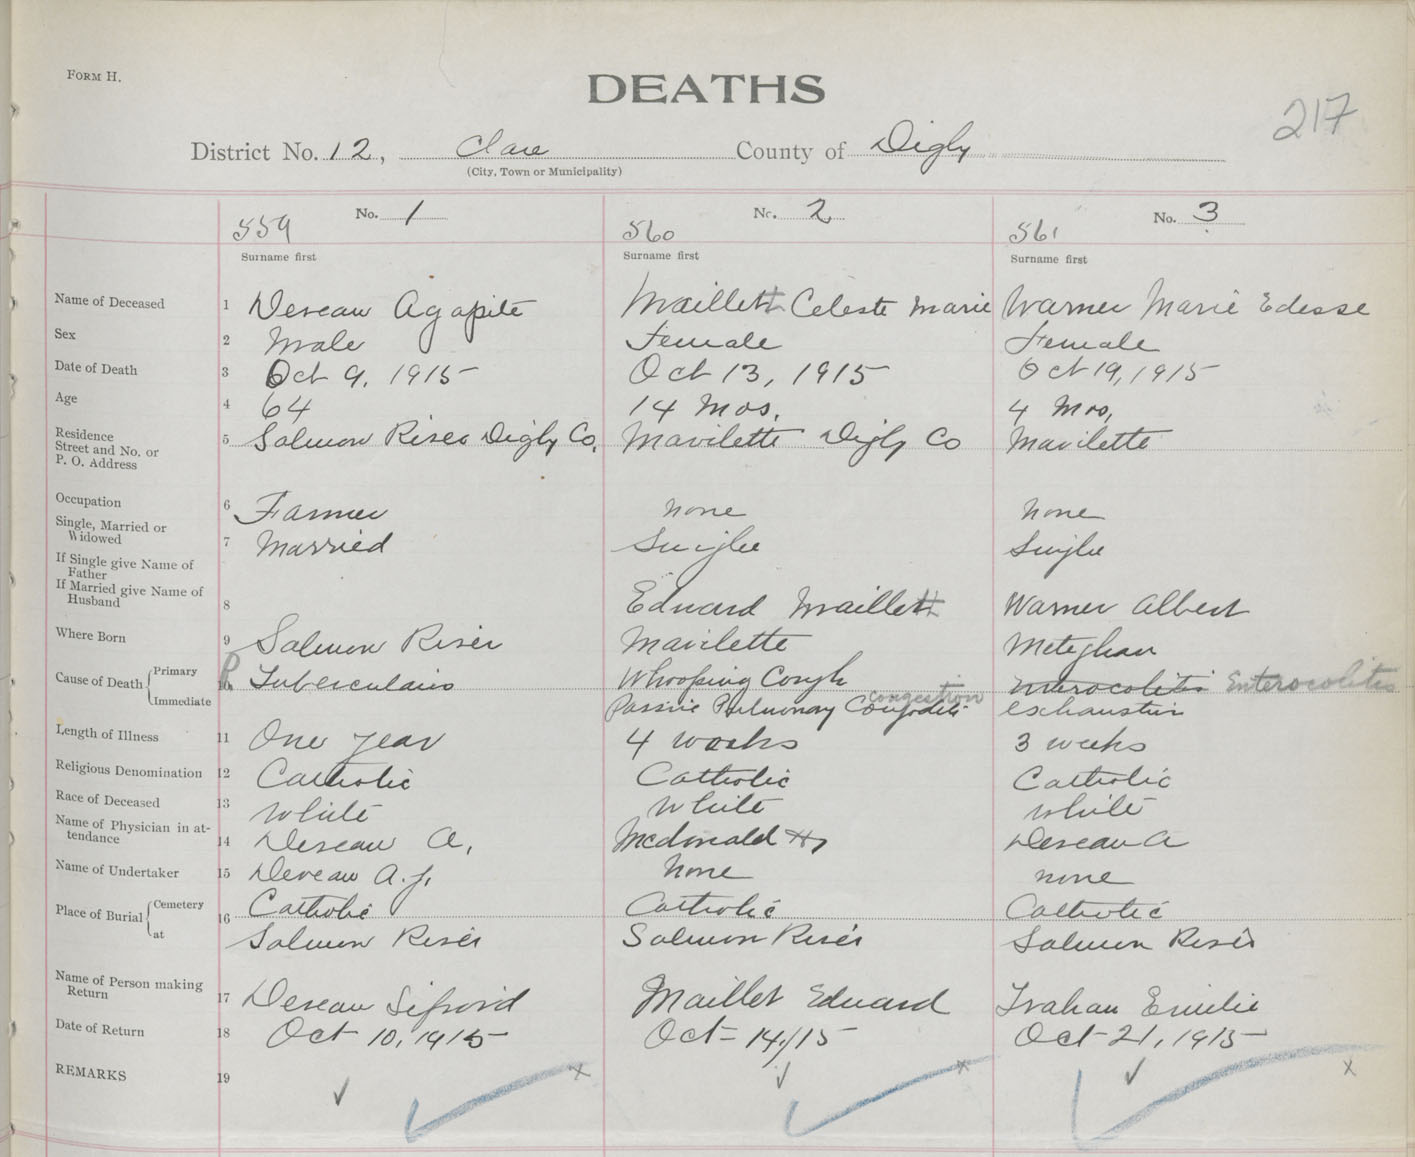 FORM H.
DEATHS
217
District No. 12, Clare County of Digby
(City, Town or Municipality)
No. 1 No. 2 No. 3
559 560 561
Surname first Surname first Surname first
Name of Deceased 1 Deveau Agapite Maillett Celeste Marie Warner Marie Edesse
Sex 2 Male Female Female
Date of Death 3 Oct 9, 1915 Oct 13, 1915 Oct 19, 1915
Age 4 64 14 Mos. 4 Mos,
Residence
Street and No. or
P. O. Address 5 Salmon River Digby Co, Mavilette Digby Co Mavilette
Occupation 6 Farmer none none
Single, Married or
Widowed 7 Married Single Single
If Single give Name of
Father
If Married give Name of
Husband 8 Edward Maillett Warner Albert
Where Born 9 Salmon River Mavilette Meteghan
Cause of Death Primary 10 Tuberculosis Whooping Cough Enterocolitis Enterocolitis
Immediate Passive Pulmonary congestion exhaustion
Length of Illness 11 One year 4 weeks 3 weeks
Religious Denomination 12 Catholic Catholic Catholic
Race of Deceased 13 White White White
Name of Physician in at-
tendance 14 Deveau A, McDonald H, Deveau A
Name of Undertaker 15 Deveau A. J. None none
Place of Burial Cemetery 16 Catholic Catholic Catholic
at Salmon River Salmon River Salmon River
Name of Person making
Return 17 Deveau Sifroid Maillet Edward Trahan Emilie
Date of Return 18 Oct 10, 1915 Oct 14/15 Oct 21, 1915
REMARKS 19
x x x